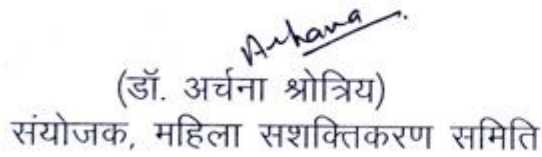 Archana
(डॉ. अर्चना श्रोत्रिय)
संयोजक, महिला सशक्तिकरण समिति